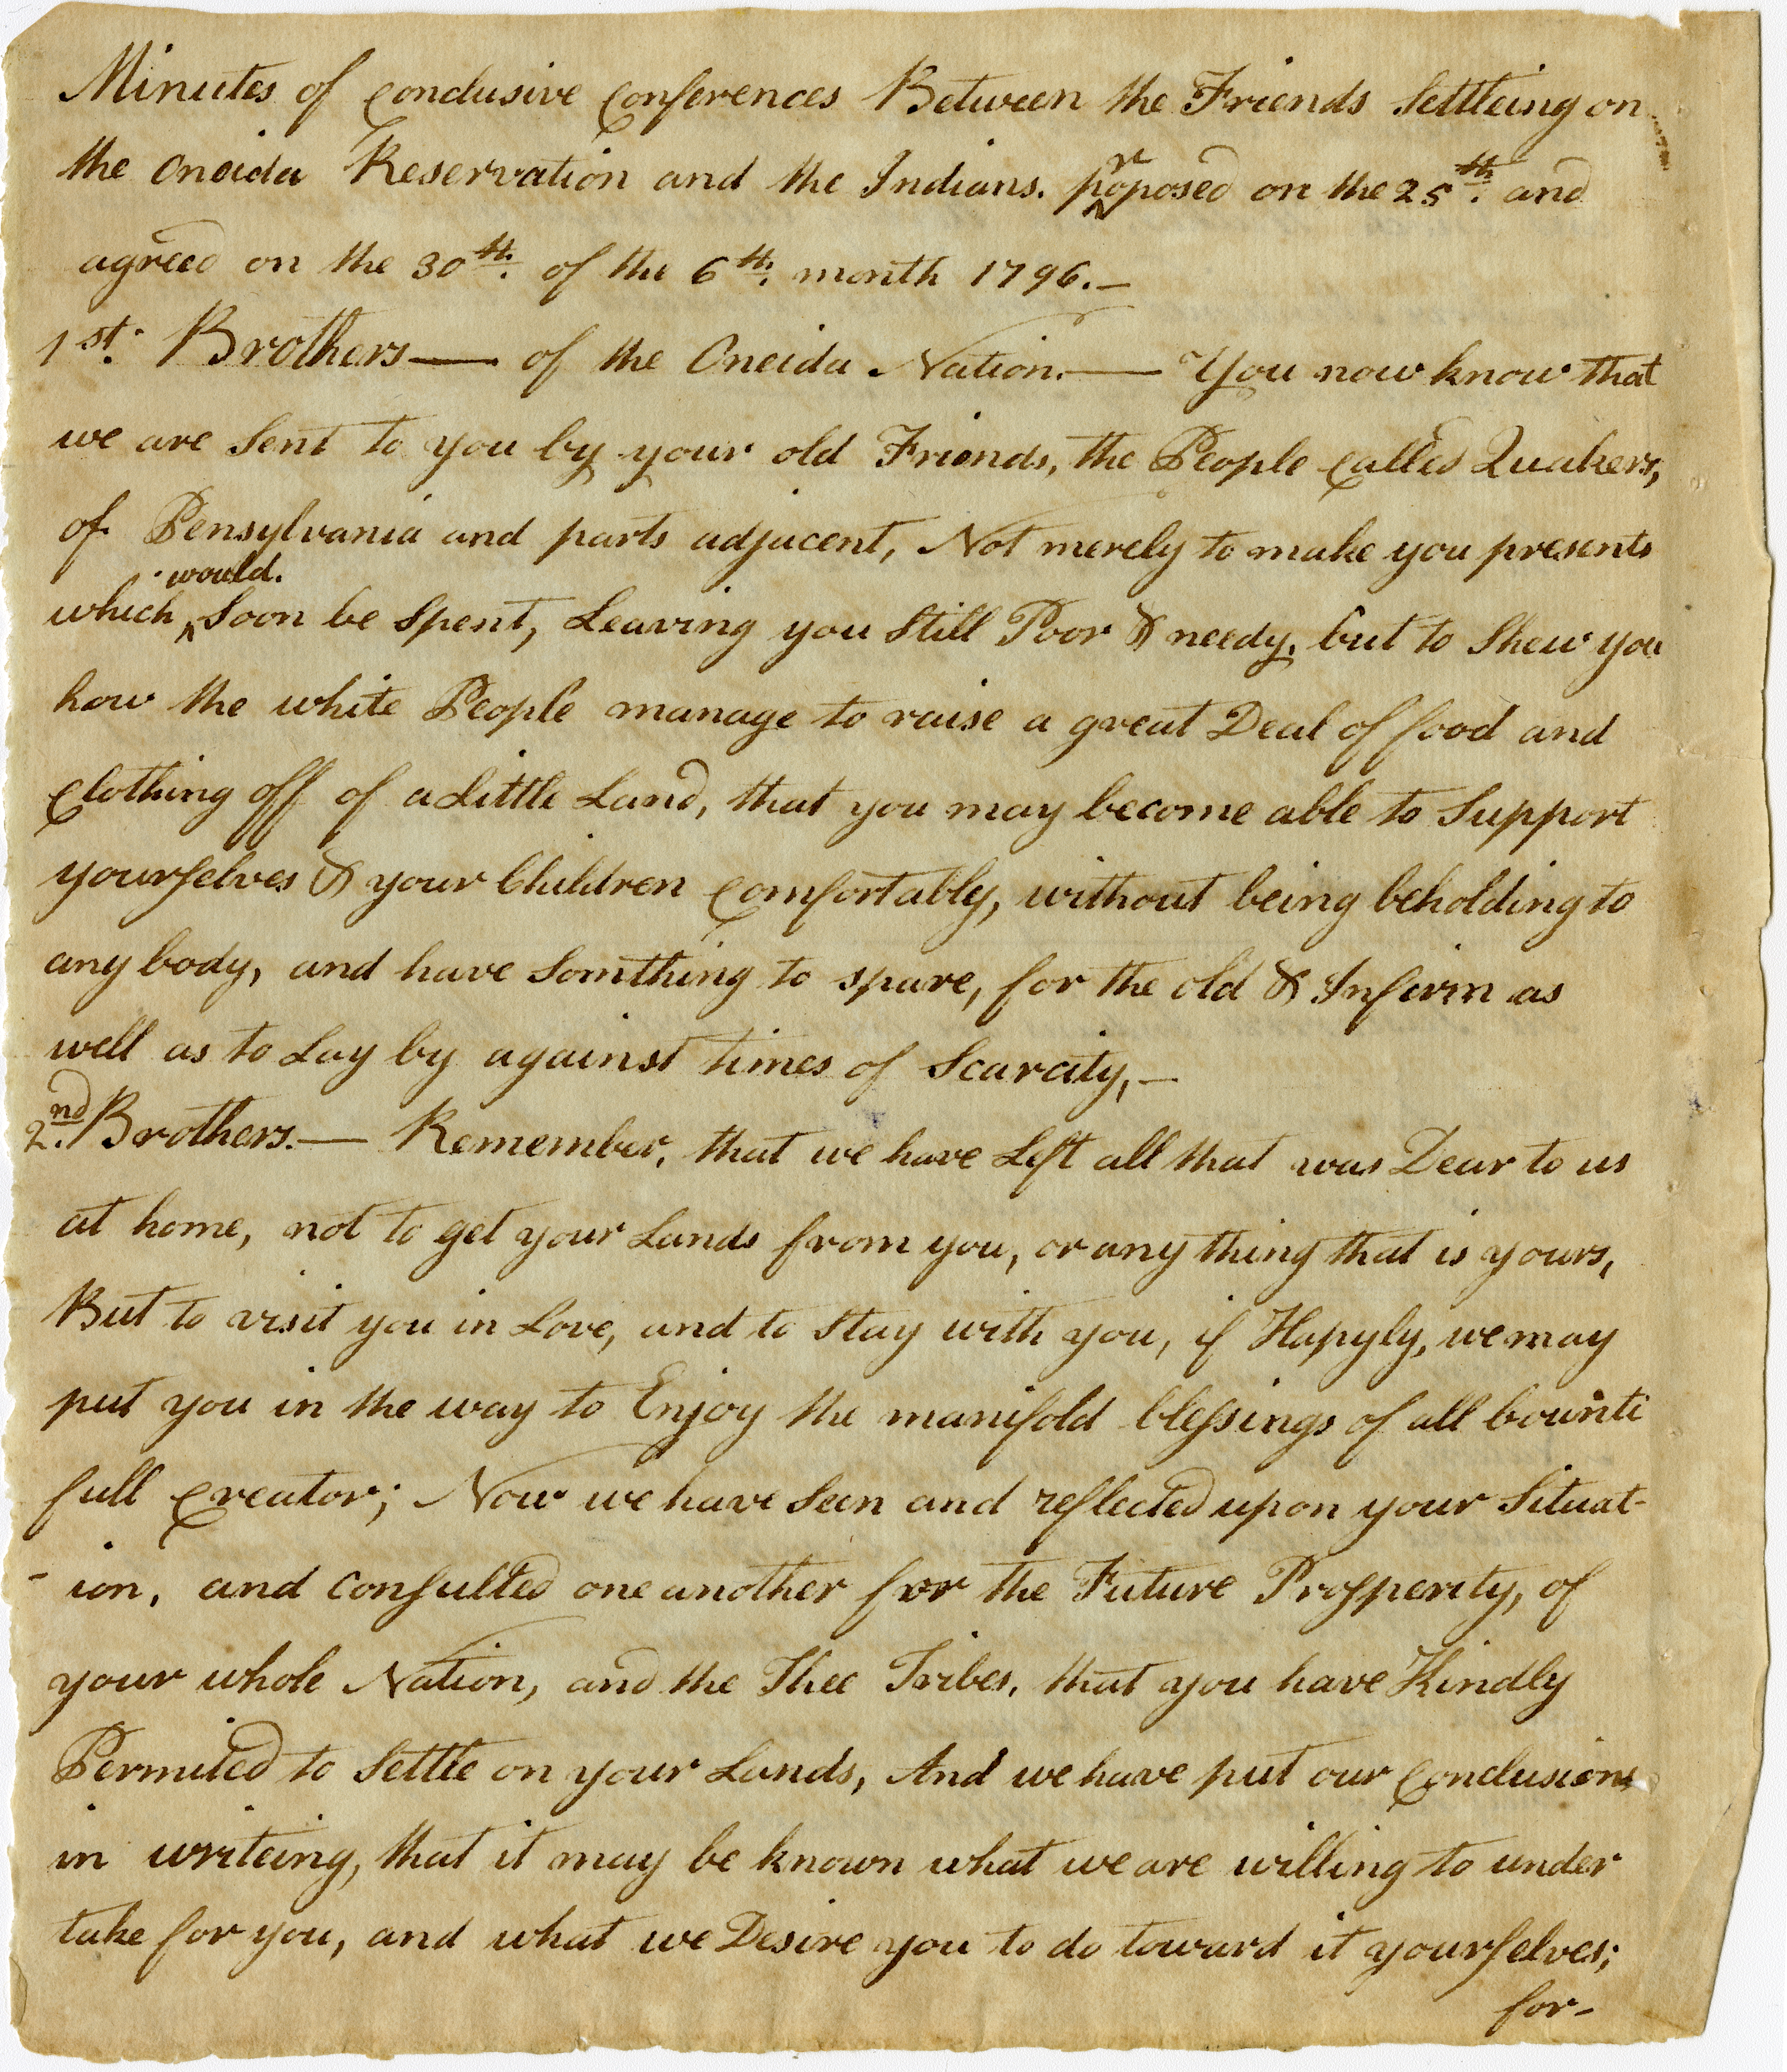 Minutes of conclusive conferences Between the Friends Settleing on
the Oneida Reservation and the Indians. proposed on the 25th. and
agreed on the 30th. of the 6th. month 1796.—
1st. Brothers— of the Oneida Nation.— You now know that
we are Sent to you by your old Friends, the People called Quakers,
of Pensylvania and parts adjacent, Not merely to make you presents
which would. Soon be Spent, Leaving you Still Poor & needy, but to Shew you
how the white People manage to raise a great Deal of food and
Clothing off of a Little Land, that you may become able to Support
yourselves & your Children comfortably, without being beholding to
any body, and have Somthing to spare, for the old & Infirm as
well as to Lay by against times of Scarcity,—
2nd. Brothers.— Remember, that we have Left all that was Dear to us
at home, not to get your Lands from you, or any thing that is yours,
But to visit you in Love, and to Stay with you, if Hapyly, we may
put you in the way to Enjoy the manifold blessings of all bounti
full Creator; Now we have Seen and reflected upon your Situat-
-ion, and consulted one another for the Future Prosperity, of
your whole Nation, and the Thee Tribes, that you have Kindly
Permited to Settle on your Lands, And we have put our Conclusions
in writeing, that it may be known what we are willing to under
take for you, and what we Desire you to do toward it yourselves;
for-